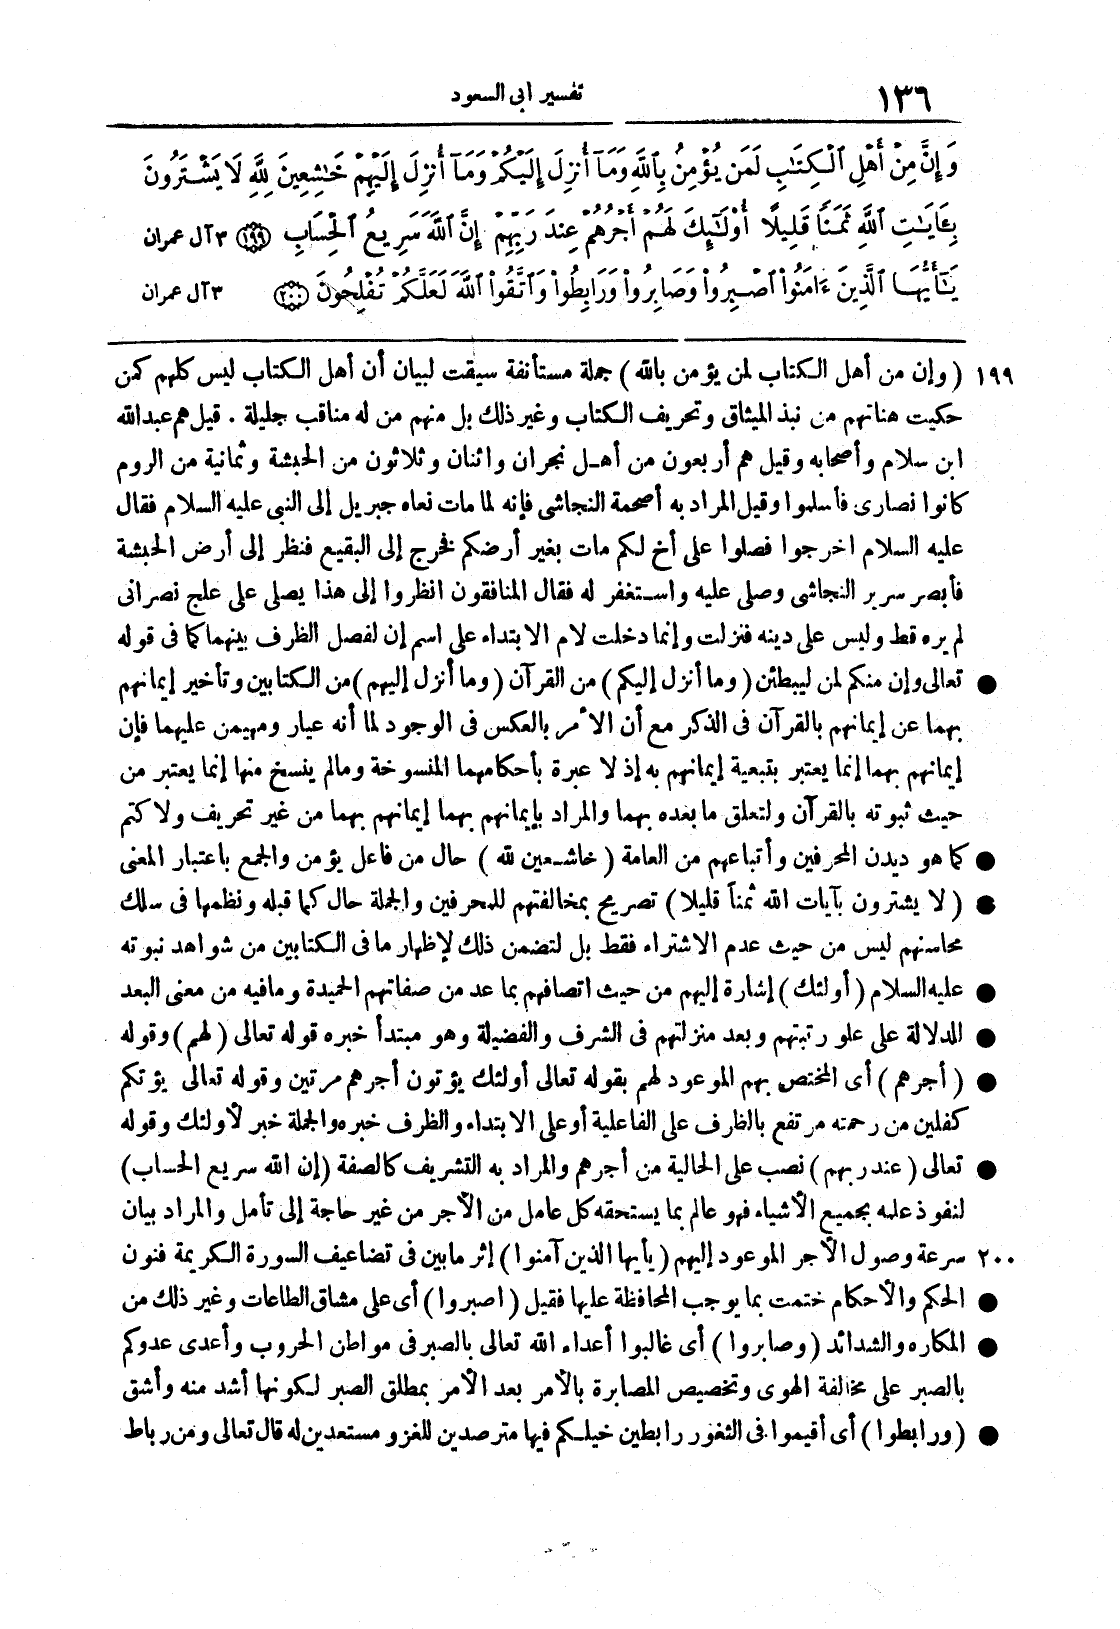 ١٣٦ تفسير أبى السعود
وَإِنَّ مِنْ أَهْلِ ٱلْكِتَٰبِ لَمَن يُؤْمِنُ بِٱللَّهِ وَمَآ أُنزِلَ إِلَيْكُمْ وَمَآ أُنزِلَ إِلَيْهِمْ خَٰشِعِينَ لِلَّهِ لَا يَشْتَرُونَ
بِـَٔايَٰتِ ٱللَّهِ ثَمَنًا قَلِيلًا أُوْلَٰٓئِكَ لَهُمْ أَجْرُهُمْ عِندَ رَبِّهِمْ إِنَّ ٱللَّهَ سَرِيعُ ٱلْحِسَابِ ١٩٩ ٣ آل عمران
يَٰٓأَيُّهَا ٱلَّذِينَ ءَامَنُوا۟ ٱصْبِرُوا۟ وَصَابِرُوا۟ وَرَابِطُوا۟ وَٱتَّقُوا۟ ٱللَّهَ لَعَلَّكُمْ تُفْلِحُونَ ٢٠٠ ٣ آل عمران
١٩٩ ( وإن من أهل الكتاب لمن يؤمن بالله ) جملة مستأنفة سيقت لبيان أن أهل الكتاب ليس كلهم كمن
حكيت هناتهم من نبذ الميثاق وتحريف الكتاب وغير ذلك بل منهم من له مناقب جليلة . قيل هم عبدالله
ابن سلام وأصحابه وقيل هم أربعون من أهل نجران واثنان وثلاثون من الحبشة وثمانية من الروم
كانوا نصارى فأسلموا وقيل المراد به أصحمة النجاشى فإنه لما مات نعاه جبريل إلى النبى عليه السلام فقال
عليه السلام اخرجوا فصلوا على أخ لكم مات بغير أرضكم فخرج إلى البقيع فنظر إلى أرض الحبشة
فأبصر سرير النجاشى وصلى عليه واستغفر له فقال المنافقون انظروا إلى هذا يصلى على علج نصرانى
لم يره قط وليس على دينه فنزلت وإنما دخلت لام الابتداء على اسم إن لفصل الظرف بينهما كما فى قوله
● تعالى وإن منكم لمن ليبطئن ( وما أنزل إليكم ) من القرآن ( وما أنزل إليهم ) من الكتابين وتأخير إيمانهم
بهما عن إيمانهم بالقرآن فى الذكر مع أن الأمر بالعكس فى الوجود لما أنه عيار ومهيمن عليهما فإن
إيمانهم بهما إنما يعتبر بتبعية إيمانهم به إذ لا عبرة بأحكامهما المنسوخة ومالم ينسخ منها إنما يعتبر من
حيث ثبوته بالقرآن ولتعلق ما بعده بهما والمراد بإيمانهم بهما إيمانهم بهما من غير تحريف ولا كتم
● كما هو ديدن المحرفين وأتباعهم من العامة ( خاشعين لله ) حال من فاعل يؤمن والجمع باعتبار المعنى
● ( لا يشترون بآيات الله ثمناً قليلا ) تصريح بمخالفتهم للمحرفين والجملة حال كما قبله ونظمها فى سلك
محاسنهم ليس من حيث عدم الاشتراء فقط بل لتضمن ذلك لإظهار ما فى الكتابين من شواهد نبوته
● عليه السلام ( أولئك ) إشارة إليهم من حيث اتصافهم بما عد من صفاتهم الحميدة ومافيه من معنى البعد
● للدلالة على علو رتبتهم وبعد منزلتهم فى الشرف والفضيلة وهو مبتدأ خبره قوله تعالى ( لهم ) وقوله
● ( أجرهم ) أى المختص بهم الموعود لهم بقوله تعالى أولئك يؤتون أجرهم مرتين وقوله تعالى يؤتكم
كفلين من رحمته مرتفع بالظرف على الفاعلية أو على الابتداء والظرف خبره والجملة خبر لأولئك وقوله
● تعالى ( عند ربهم ) نصب على الحالية من أجرهم والمراد به التشريف كالصفة ( إن الله سريع الحساب )
لنفوذ علمه بجميع الأشياء فهو عالم بما يستحقه كل عامل من الأجر من غير حاجة إلى تأمل والمراد بيان
٢٠٠ سرعة وصول الأجر الموعود إليهم ( يأيها الذين آمنوا ) إثر مابين فى تضاعيف السورة الكريمة فنون
● الحكم والأحكام ختمت بما يوجب المحافظة عليها فقيل ( اصبروا ) أى على مشاق الطاعات وغير ذلك من
● المكاره والشدائد ( وصابروا ) أى غالبوا أعداء الله تعالى بالصبر فى مواطن الحروب وأعدى عدوكم
بالصبر على مخالفة الهوى وتخصيص المصابرة بالأمر بعد الأمر بمطلق الصبر لكونها أشد منه وأشق
● ( ورابطوا ) أى أقيموا فى الثغور رابطين خيلكم فيها مترصدين للغزو مستعدين له قال تعالى ومن رباط